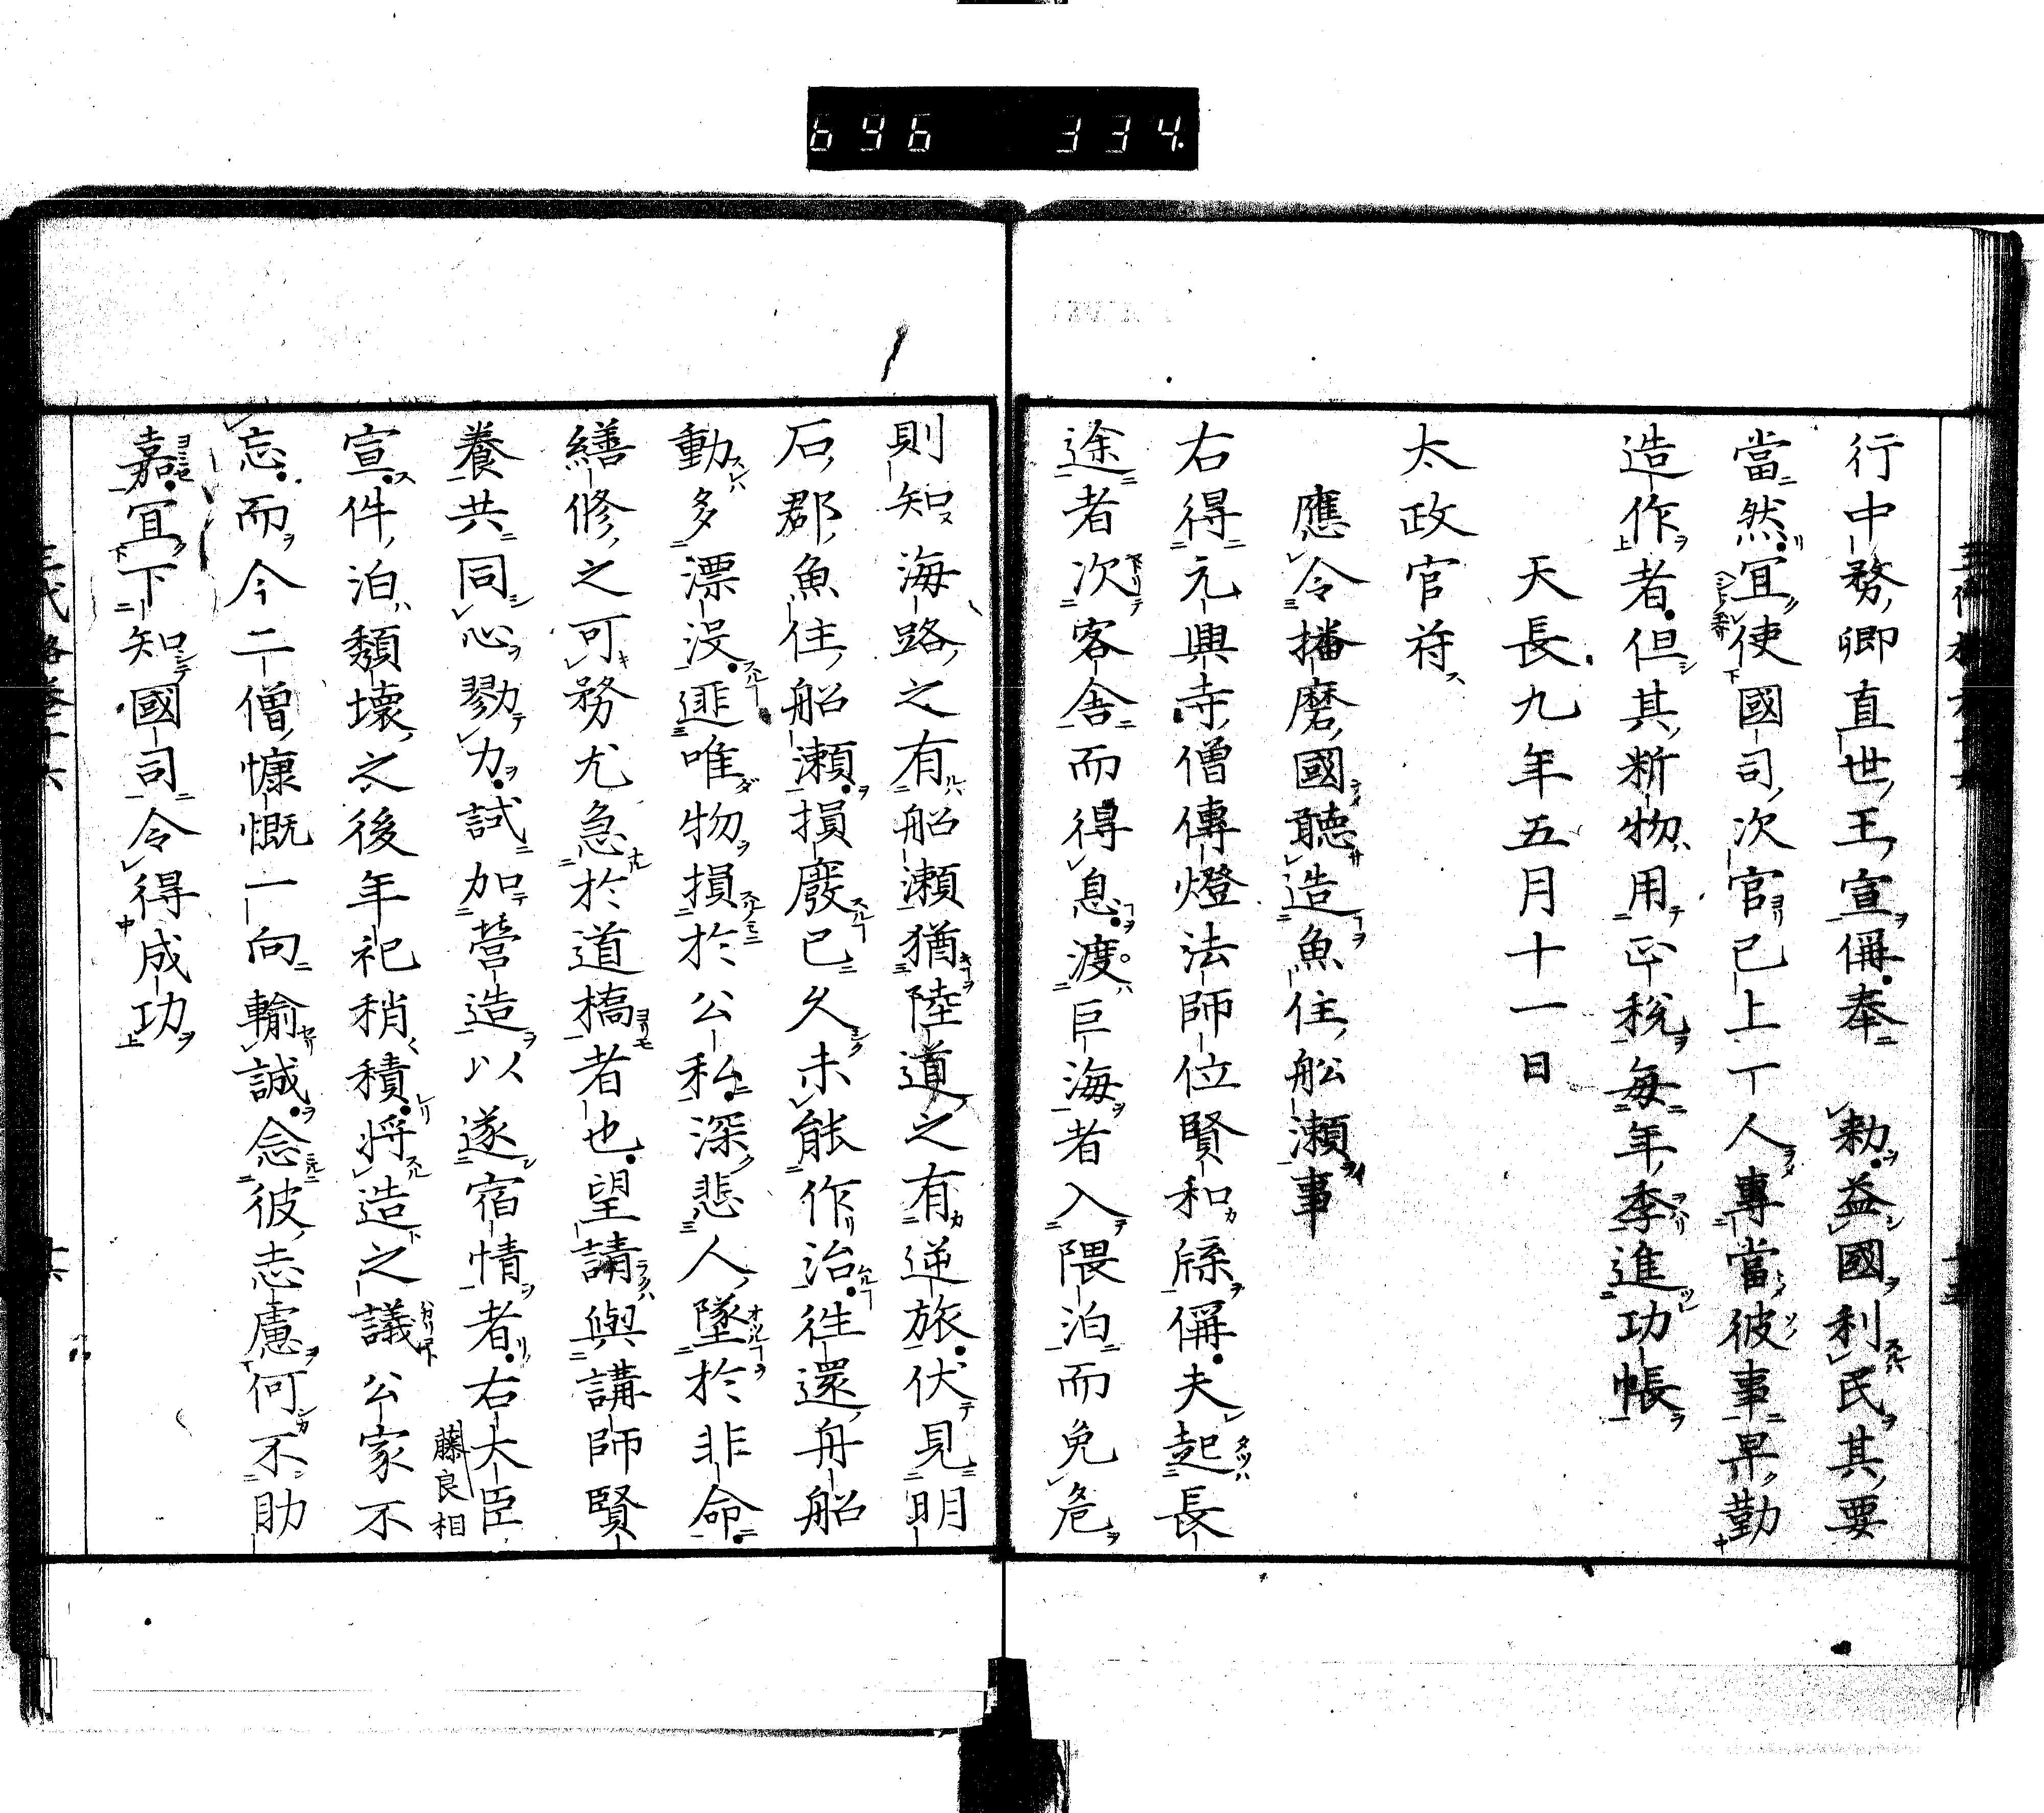 696 334.
行中務卿直世王宣偁奉　勅益國利民其要
當然冝使國司次官已上一人專當彼事早勤
造作者但其新物用正稅每年季進功帳
天長九年五月十一日
太政官符
應令播磨國聽造魚住舩瀬事
右得元興寺僧傳燈法師位賢和牒偁夫起長
途者次客舎而得息渡巨海者入隈泊而免危
則知海路之有船瀬猶陸道之有逆旅伏見明
石郡魚住船瀬損廢已久未能作治徃還舟船
動多漂没匪唯物損於公私深悲人墜於非命
繕修之可務尤急於道橋者也望請與講師賢
養共同心勠力試加營造以遂宿情者右大臣
藤良相
宣件泊頽壊之後年祀稍積将造之議公家不
忘而今二僧慷慨一向輸誠念彼志慮何不助
嘉冝下知國司令得成功